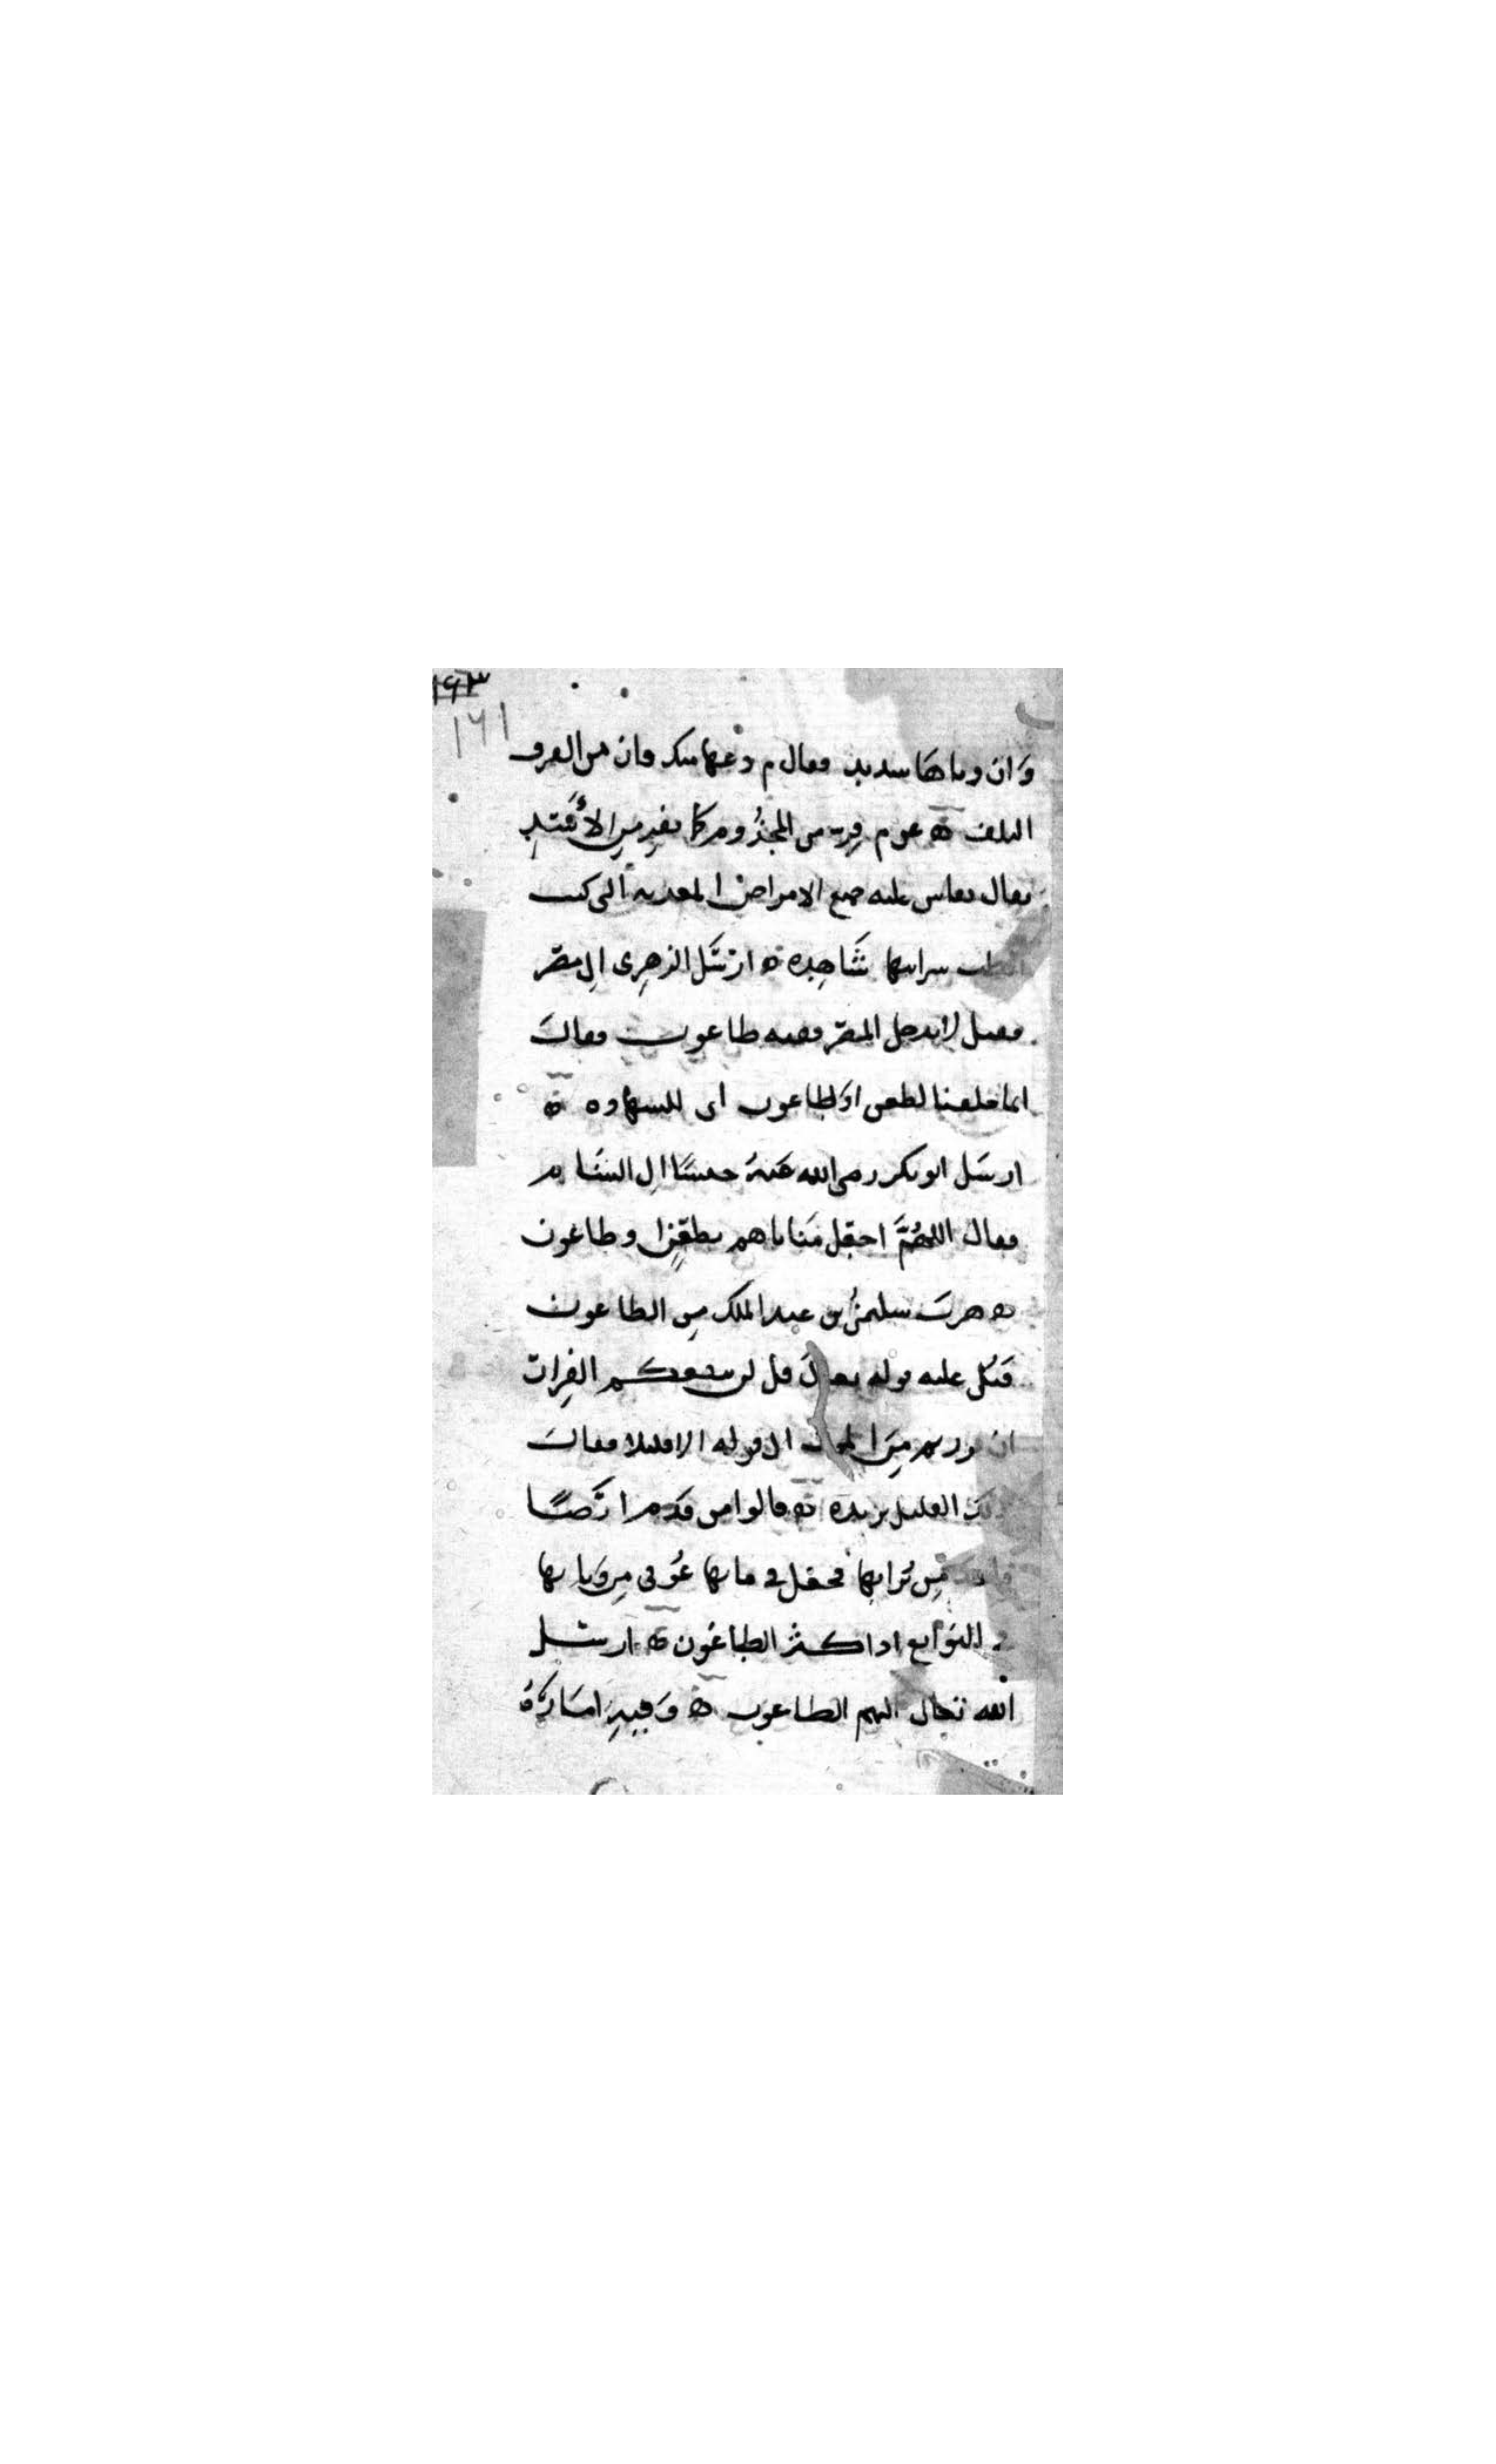 ١٩٣
١٦١
وَان وباهَا شديد فقال م دعها عنك فان من القرف
التلف ه عن م فِرّ من المجذُوم كما تفِر مِن الأسَدِ
يقال يقاس عليه جميع الامراض المعدية التى كتب
الطب سرايتها شَاهِده ه ارسَل الزهرى الى مصر
فقيل لا تدخل المصر ففيه طاعون فقالَ
انما خلقنا لطعن او لطاعون اى للشهاده ه
ارسَل ابو بكر رضى الله عَنهُ جيشًا الى الشام
فقال اللهُمَّ اجعَل مَناياهم بطَعْنٍ او طاعُون
ه هربَ سليمنُ بن عبد الملك مِن الطاعون
فتُلى عليه قوله تعالىَ قل لن ينفعكم الفِرار
ان فررتم مِنَ الموت الى قوله الا قليلا فقالَ
ذلك القليل نريده ه قالوا من قدم ارضًا
فاخذ مِن تُرابها فجعَل فى مايها عُوفى مِن وَبايها
فى التوابع اذا كثر الطاعُون ه ارسل
الله تعالى اليهم الطاعون ه وَفيهِ اشَارَةُ